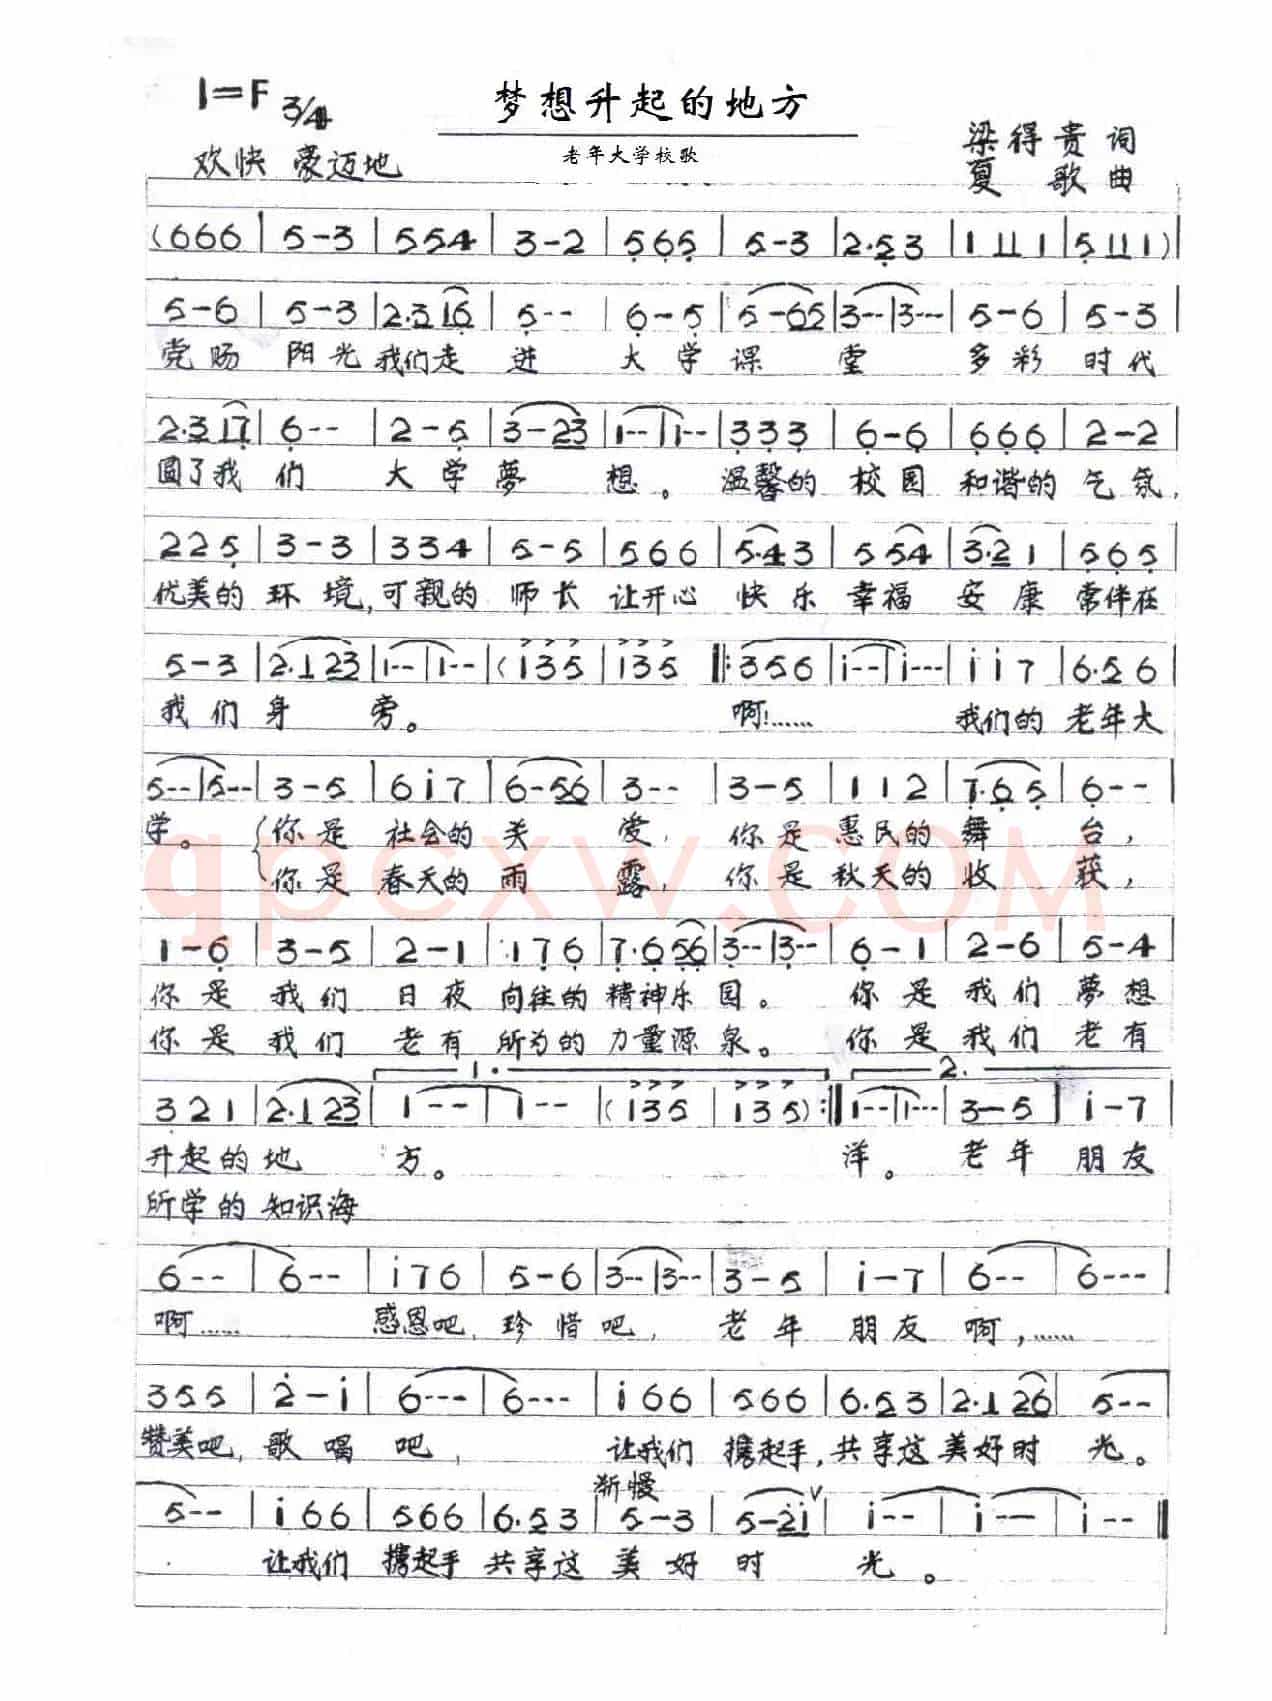 1=F 3/4
梦想升起的地方
老年大学校歌
欢快 豪迈地
梁得贵 词
夏歌 曲
(666 | 5-3 | 554 | 3-2 | 565 | 5-3 | 2·53 | 1 11 1 | 5 11 1)
5-6 | 5-3 | 2·316 | 5-- | 6-5 | 5-65 | 3-- | 3-- | 5-6 | 5-3
党旸 阳光 我们走 进 大学课堂 多彩时代
2·317 | 6-- | 2-5 | 3-23 | 1-- | 1-- | 333 | 6-6 | 666 | 2-2
圆了我们 大学夢想。温馨的校园 和谐的气氛,
225 | 3-3 | 334 | 5-5 | 566 | 5·43 | 554 | 3·21 | 565
优美的环境,可親的师长 让开心 快乐 幸福 安康 常伴在
5-3 | 2·123 | 1-- | 1-- | (135 | 135 ‖: 356 | i-- | i--- | ii7 | 6·56
我们身旁。 啊!…… 我们的老年大
5-- | 5-- | 3-5 | 6i7 | 6-56 | 3-- | 3-5 | 112 | 7·65 | 6--
学。 你是 社会的关爱, 你是惠民的舞台,
你是 春天的雨露, 你是秋天的收获,
1-6 | 3-5 | 2-1 | 176 | 7·656 | 3-- | 3-- | 6-1 | 2-6 | 5-4
你是我们 日夜 向往的精神乐园。 你是我们夢想
你是我们 老有 所为的力量源泉。 你是我们老有
1. 2.
321 | 2·123 | 1-- | 1-- | (135 | 135) :‖ 1-- | 1--- | 3-5 | i-7
升起的地方。 洋。 老年朋友
所学的知识海
6-- | 6-- | i76 | 5-6 | 3-- | 3-- | 3-5 | i-7 | 6-- | 6---
啊…… 感恩吧, 珍惜吧, 老年朋友啊,……
355 | 2-i | 6--- | 6--- | i66 | 566 | 6·53 | 2·126 | 5--
赞美吧, 歌唱吧, 让我们携起手,共享这美好时光。
渐慢
5-- | i66 | 566 | 6·53 | 5-3 | 5-2i V | i-- | i-- | i-- ‖
让我们携起手 共享这美好时光。
qpcxw.COM